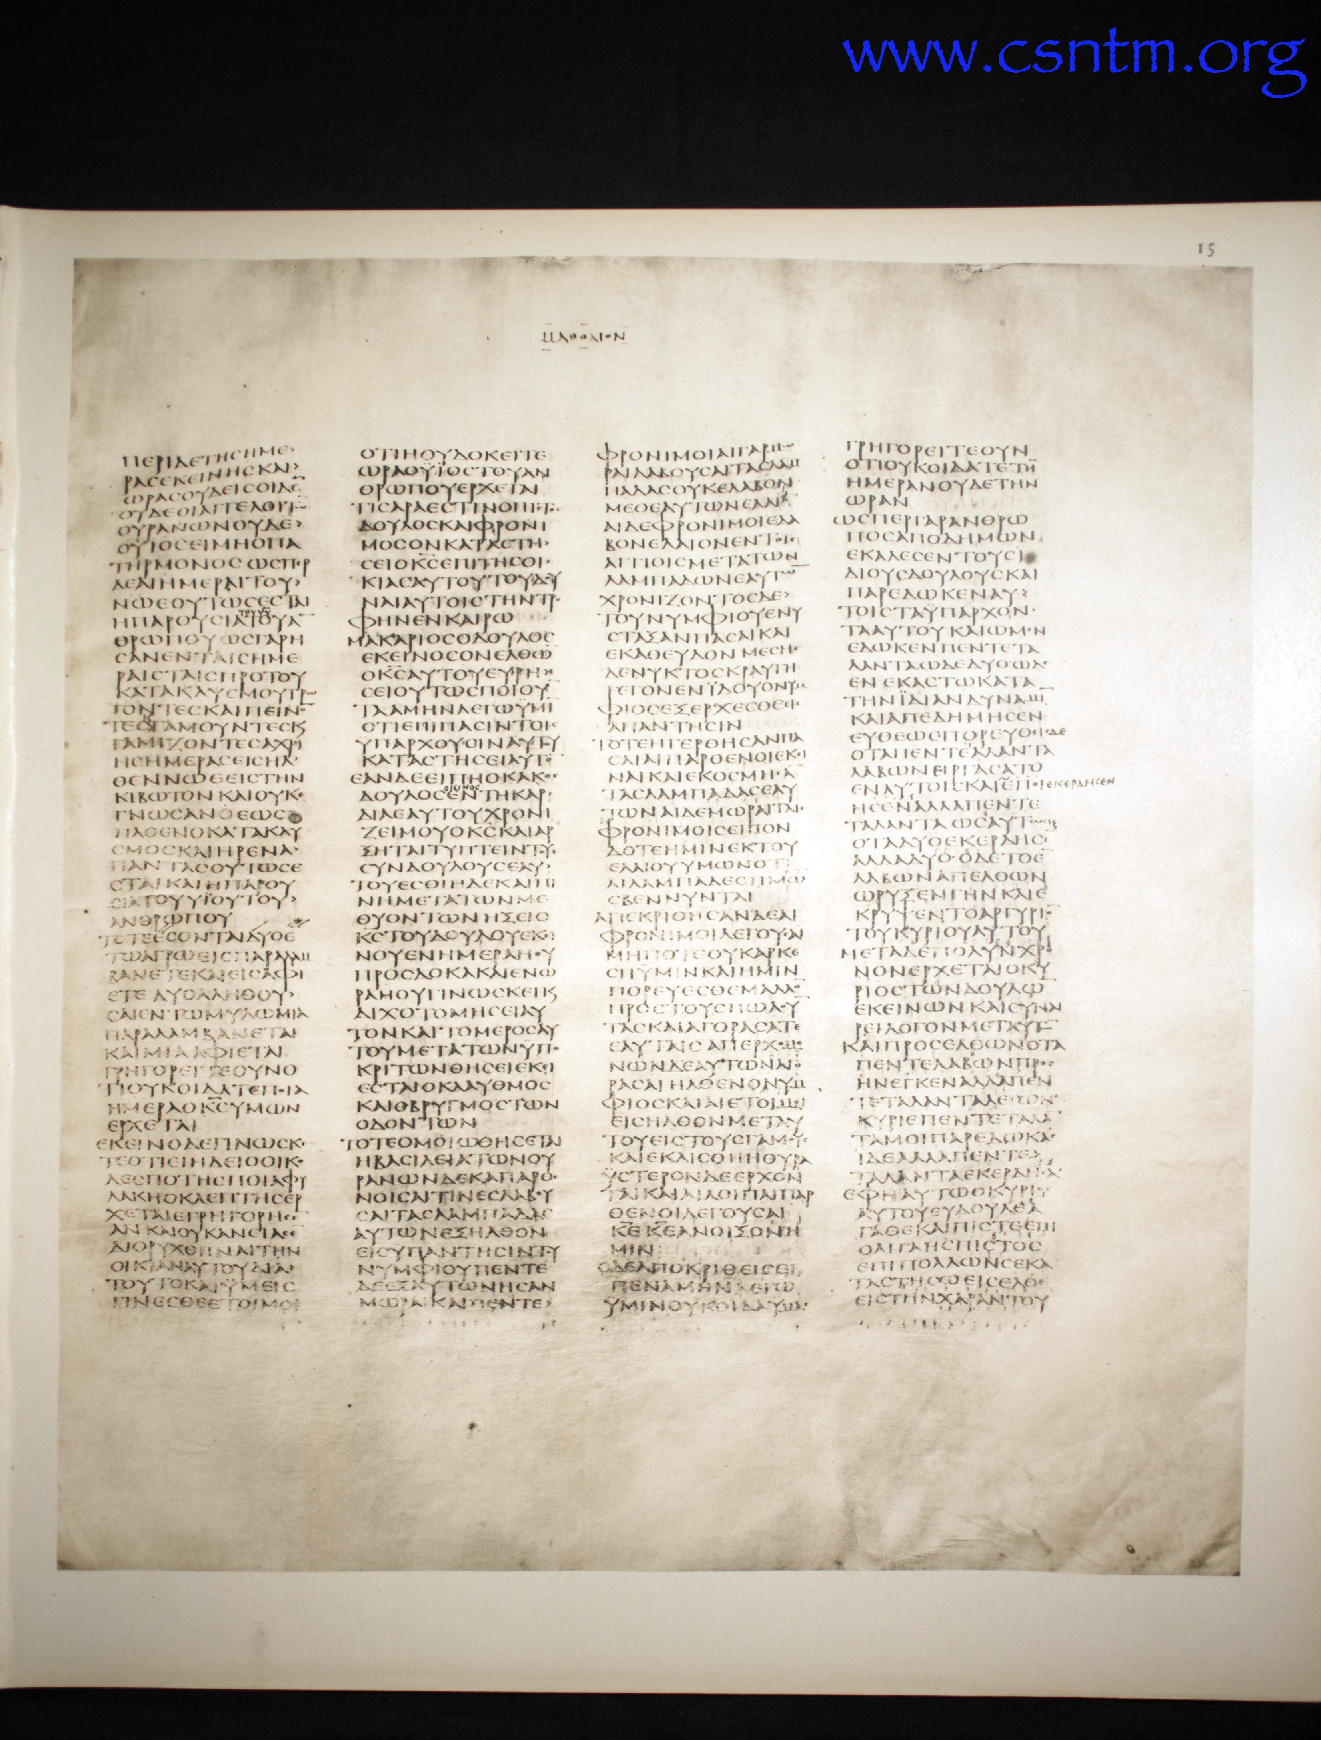 www.csntm.org
15
ΜΑΘΘΑΙΟΝ
ΠΕΡΙΔΕΤΗСΗΜΕ
ΡΑСΕΚΕΙΝΗСΚΑΙ
ΩΡΑСΟΥΔΕΙСΟΙΔΕ
ΟΥΔΕΟΙΑΓΓΕΛΟΙΤΩ
ΟΥΡΑΝΩΝΟΥΔΕ
ΟΥΙΟСΕΙΜΗΟΠΑ
ΤΗΡΜΟΝΟСΩСΠΕΡ
ΔΕΑΙΗΜΕΡΑΙΤΟΥ
ΝΩΕΟΥΤΩСΕСΤΑΙ
ΗΠΑΡΟΥСΙΑΤΟΥΑ
ΘΡΩΠΟΥΩСΓΑΡΗ
СΑΝΕΝΤΑΙСΗΜΕ
ΡΑΙСΤΑΙСΠΡΟΤΟΥ
ΚΑΤΑΚΛΥСΜΟΥΤΡΩ
ΓΟΝΤΕСΚΑΙΠΕΙΝΟ
ΤΕСΓΑΜΟΥΝΤΕСΚ
ΓΑΜΙΖΟΝΤΕСΑΧΡΙ
ΗСΗΜΕΡΑСΕΙСΗΛ
ΘΕΝΝΩΕΕΙСΤΗΝ
ΚΙΒΩΤΟΝΚΑΙΟΥΚΕ
ΓΝΩСΑΝΕΩС
ΗΛΘΕΝΟΚΑΤΑΚΛΥ
СΜΟСΚΑΙΗΡΕΝΑ
ΠΑΝΤΑСΟΥΤΩСΕ
СΤΑΙΚΑΙΗΠΑΡΟΥ
СΙΑΤΟΥΥΙΟΥΤΟΥ
ΑΝΘΡΩΠΟΥ
ΤΟΤΕΕСΟΝΤΑΙΔΥΟΕ
ΤΩΑΓΡΩΕΙСΠΑΡΑΛΑΜ
ΒΑΝΕΤΕΚΑΙΕΙСΑΦΙ
ΕΤΕΔΥΟΑΛΗΘΟΥ
СΑΙΕΝΤΩΜΥΛΩΜΙΑ
ΠΑΡΑΛΑΜΒΑΝΕΤΑΙ
ΚΑΙΜΙΑΑΦΙΕΤΑΙ
ΓΡΗΓΟΡΕΙΤΕΟΥΝΟ
ΤΙΟΥΚΟΙΔΑΤΕΠΟΙΑ
ΗΜΕΡΑΟΚСΥΜΩΝ
ΕΡΧΕΤΑΙ
ΕΚΕΙΝΟΔΕΓΙΝΩСΚΕ
ΤΕΟΤΙΕΙΗΔΕΙΟΟΙΚΟ
ΔΕСΠΟΤΗСΠΟΙΑΦΥ
ΛΑΚΗΟΚΛΕΠΤΗСΕΡ
ΧΕΤΑΙΕΓΡΗΓΟΡΗСΕ
ΑΝΚΑΙΟΥΚΑΝΕΙΑСΕ
ΔΙΟΡΥΧΘΗΝΑΙΤΗΝ
ΟΙΚΙΑΝΑΥΤΟΥΔΙΑ
ΤΟΥΤΟΚΑΙΥΜΕΙС
ΓΙΝΕСΘΕΕΤΟΙΜΟΙ
ΟΤΙΗΟΥΔΟΚΕΙΤΕ
ΩΡΑΟΥΙΟСΤΟΥΑΝ
ΘΡΩΠΟΥΕΡΧΕΤΑΙ
ΤΙСΑΡΑΕСΤΙΝΟΠΙСΤΟС
ΔΟΥΛΟСΚΑΙΦΡΟΝΙ
ΜΟСΟΝΚΑΤΑСΤΗ
СΕΙΟΚСΕΠΙΤΗСΟΙ
ΚΙΑСΑΥΤΟΥΤΟΥΔΟΥ
ΝΑΙΑΥΤΟΙСΤΗΝΤΡΟ
ΦΗΝΕΝΚΑΙΡΩ
ΜΑΚΑΡΙΟСΟΔΟΥΛΟС
ΕΚΕΙΝΟСΟΝΕΛΘΩ
ΟΚСΑΥΤΟΥΕΥΡΗ
СΕΙΟΥΤΩСΠΟΙΟΥ
ΤΑΑΜΗΝΛΕΓΩΥΜΙ
ΟΤΙΕΠΙΠΑСΙΝΤΟΙС
ΥΠΑΡΧΟΥСΙΝΑΥΤΟΥ
ΚΑΤΑСΤΗСΕΙΑΥΤΟ
ΕΑΝΔΕΕΙΠΗΟΚΑΚΟС
ΔΟΥΛΟСΕΝΤΗΚΑΡ
ΔΙΑΕΑΥΤΟΥΧΡΟΝΙ
ΖΕΙΜΟΥΟΚСΚΑΙΑΡ
ΞΗΤΑΙΤΥΠΤΕΙΝΤΟΥС
СΥΝΔΟΥΛΟΥСΕΑΥ
ΤΟΥΕСΘΙΗΔΕΚΑΙΠΙ
ΝΗΜΕΤΑΤΩΝΜΕ
ΘΥΟΝΤΩΝΗΞΕΙΟ
ΚСΤΟΥΔΟΥΛΟΥΕΚΕΙ
ΝΟΥΕΝΗΜΕΡΑΗΟΥ
ΠΡΟСΔΟΚΑΚΑΙΕΝΩ
ΡΑΗΟΥΓΙΝΩСΚΕΙΚ
ΔΙΧΟΤΟΜΗСΕΙΑΥ
ΤΟΝΚΑΙΤΟΜΕΡΟСΑΥ
ΤΟΥΜΕΤΑΤΩΝΥΠΟ
ΚΡΙΤΩΝΘΗСΕΙΕΚΕΙ
ΕСΤΑΙΟΚΛΑΥΘΜΟС
ΚΑΙΟΒΡΥΓΜΟСΤΩΝ
ΟΔΟΝΤΩΝ
ΤΟΤΕΟΜΟΙΩΘΗСΕΤΑΙ
ΗΒΑСΙΛΕΙΑΤΩΝΟΥ
ΡΑΝΩΝΔΕΚΑΠΑΡΘΕ
ΝΟΙСΑΙΤΙΝΕСΛΑΒΟΥ
СΑΙΤΑСΛΑΜΠΑΔΑС
ΑΥΤΩΝΕΞΗΛΘΟΝ
ΕΙСΥΠΑΝΤΗСΙΝΤΟΥ
ΝΥΜΦΙΟΥΠΕΝΤΕ
ΔΕΕΞΑΥΤΩΝΗСΑΝ
ΜΩΡΑΙΚΑΙΠΕΝΤΕ
ΦΡΟΝΙΜΟΙΑΙΓΑΡΜΩ
ΡΑΙΛΑΒΟΥСΑΙΤΑСΛΑΜ
ΠΑΔΑСΟΥΚΕΛΑΒΟΝ
ΜΕΘΕΑΥΤΩΝΕΛΑΙΟ
ΑΙΔΕΦΡΟΝΙΜΟΙΕΛΑ
ΒΟΝΕΛΑΙΟΝΕΝΤΟΙС
ΑΓΓΙΟΙСΜΕΤΑΤΩΝ
ΛΑΜΠΑΔΩΝΕΑΥΤΩ
ΧΡΟΝΙΖΟΝΤΟСΔΕ
ΤΟΥΝΥΜΦΙΟΥΕΝΥ
СΤΑΞΑΝΠΑСΑΙΚΑΙ
ΕΚΑΘΕΥΔΟΝΜΕСΗС
ΔΕΝΥΚΤΟСΚΡΑΥΓΗ
ΓΕΓΟΝΕΝΙΔΟΥΟΝΥΜ
ΦΙΟСΕΞΕΡΧΕСΘΕΕΙС
ΑΠΑΝΤΗСΙΝ
ΤΟΤΕΗΓΕΡΘΗСΑΝΠΑ
СΑΙΑΙΠΑΡΘΕΝΟΙΕΚΕΙ
ΝΑΙΚΑΙΕΚΟСΜΗСΑ
ΤΑСΛΑΜΠΑΔΑСΕΑΥ
ΤΩΝΑΙΔΕΜΩΡΑΙΤΑΙС
ΦΡΟΝΙΜΟΙСΕΙΠΟΝ
ΔΟΤΕΗΜΙΝΕΚΤΟΥ
ΕΛΑΙΟΥΥΜΩΝΟΤΙ
ΑΙΛΑΜΠΑΔΕСΗΜΩ
СΒΕΝΝΥΝΤΑΙ
ΑΠΕΚΡΙΘΗСΑΝΔΕΑΙ
ΦΡΟΝΙΜΟΙΛΕΓΟΥСΑΙ
ΜΗΠΟΤΕΟΥΚΑΡΚΕ
СΗΥΜΙΝΚΑΙΗΜΙΝ
ΠΟΡΕΥΕСΘΕΜΑΛΛΟ
ΠΡΟСΤΟΥСΠΩΛΟΥ
ΤΑСΚΑΙΑΓΟΡΑСΑΤΕ
ΕΑΥΤΑΙСΑΠΕΡΧΟΜΕ
ΝΩΝΔΕΑΥΤΩΝΑΓΟ
ΡΑСΑΙΗΛΘΕΝΟΝΥΜ
ΦΙΟСΚΑΙΑΙΕΤΟΙΜΟΙ
ΕΙСΗΛΘΟΝΜΕΤΑΥ
ΤΟΥΕΙСΤΟΥСΓΑΜΟΥС
ΚΑΙΕΚΛΙСΘΗΗΘΥΡΑ
ΥСΤΕΡΟΝΔΕΕΡΧΟΝ
ΤΑΙΚΑΙΑΙΛΟΙΠΑΙΠΑΡ
ΘΕΝΟΙΛΕΓΟΥСΑΙ
ΚΕΚΕΑΝΟΙΞΟΝΗ
ΜΙΝ
ΟΔΕΑΠΟΚΡΙΘΕΙСΕΙ
ΠΕΝΑΜΗΝΛΕΓΩ
ΥΜΙΝΟΥΚΟΙΔΑΥΜΑС
ΓΡΗΓΟΡΕΙΤΕΟΥΝ
ΟΤΙΟΥΚΟΙΔΑΤΕΤΗ
ΗΜΕΡΑΝΟΥΔΕΤΗΝ
ΩΡΑΝ
ΩСΠΕΡΓΑΡΑΝΘΡΩ
ΠΟСΑΠΟΔΗΜΩΝ
ΕΚΑΛΕСΕΝΤΟΥСΙ
ΔΙΟΥСΔΟΥΛΟΥСΚΑΙ
ΠΑΡΕΔΩΚΕΝΑΥ
ΤΟΙСΤΑΥΠΑΡΧΟΝ
ΤΑΑΥΤΟΥΚΑΙΩΜΕΝ
ΕΔΩΚΕΝΠΕΝΤΕΤΑ
ΛΑΝΤΑΩΔΕΔΥΟΩΔΕ
ΕΝΕΚΑСΤΩΚΑΤΑ
ΤΗΝΙΔΙΑΝΔΥΝΑΜΙ
ΚΑΙΑΠΕΔΗΜΗСΕΝ
ΕΥΘΕΩСΠΟΡΕΥΘΕΙСΔΕ
ΟΤΑΠΕΝΤΕΤΑΛΑΝΤΑ
ΛΑΒΩΝΕΙΡΓΑСΑΤΟ
ΕΝΑΥΤΟΙСΚΑΙΕΠΟΙ ΕΚΕΡΔΗСΕΝ
ΗСΕΝΑΛΛΑΠΕΝΤΕ
ΤΑΛΑΝΤΑΩСΑΥΤΩС
ΟΤΑΔΥΟΕΚΕΡΔΗСΕ
ΑΛΛΑΔΥΟΟΔΕΤΟΕ
ΛΑΒΩΝΑΠΕΛΘΩΝ
ΩΡΥΞΕΝΓΗΝΚΑΙΕ
ΚΡΥΨΕΝΤΟΑΡΓΥΡΙΟ
ΤΟΥΚΥΡΙΟΥΑΥΤΟΥ
ΜΕΤΑΔΕΠΟΛΥΝΧΡΟ
ΝΟΝΕΡΧΕΤΑΙΟΚΥ
ΡΙΟСΤΩΝΔΟΥΛΩ
ΕΚΕΙΝΩΝΚΑΙСΥΝΑΙ
ΡΕΙΛΟΓΟΝΜΕΤΑΥΤΩ
ΚΑΙΠΡΟСΕΛΘΩΝΟΤΑ
ΠΕΝΤΕΛΑΒΩΝΠΡΟС
ΗΝΕΓΚΕΝΑΛΛΑΠΕΝ
ΤΕΤΑΛΑΝΤΑΛΕΓΩΝ
ΚΥΡΙΕΠΕΝΤΕΤΑΛΑ
ΤΑΜΟΙΠΑΡΕΔΩΚΑС
ΙΔΕΑΛΛΑΠΕΝΤΕ
ΤΑΛΑΝΤΑΕΚΕΡΔΗСΑ
ΕΦΗΑΥΤΩΟΚΥΡΙΟС
ΑΥΤΟΥΕΥΔΟΥΛΕΑ
ΓΑΘΕΚΑΙΠΙСΤΕΕΠΙ
ΟΛΙΓΑΗСΠΙСΤΟС
ΕΠΙΠΟΛΛΩΝСΕΚΑ
ΤΑСΤΗСΩΕΙСΕΛΘΕ
ΕΙСΤΗΝΧΑΡΑΝΤΟΥ